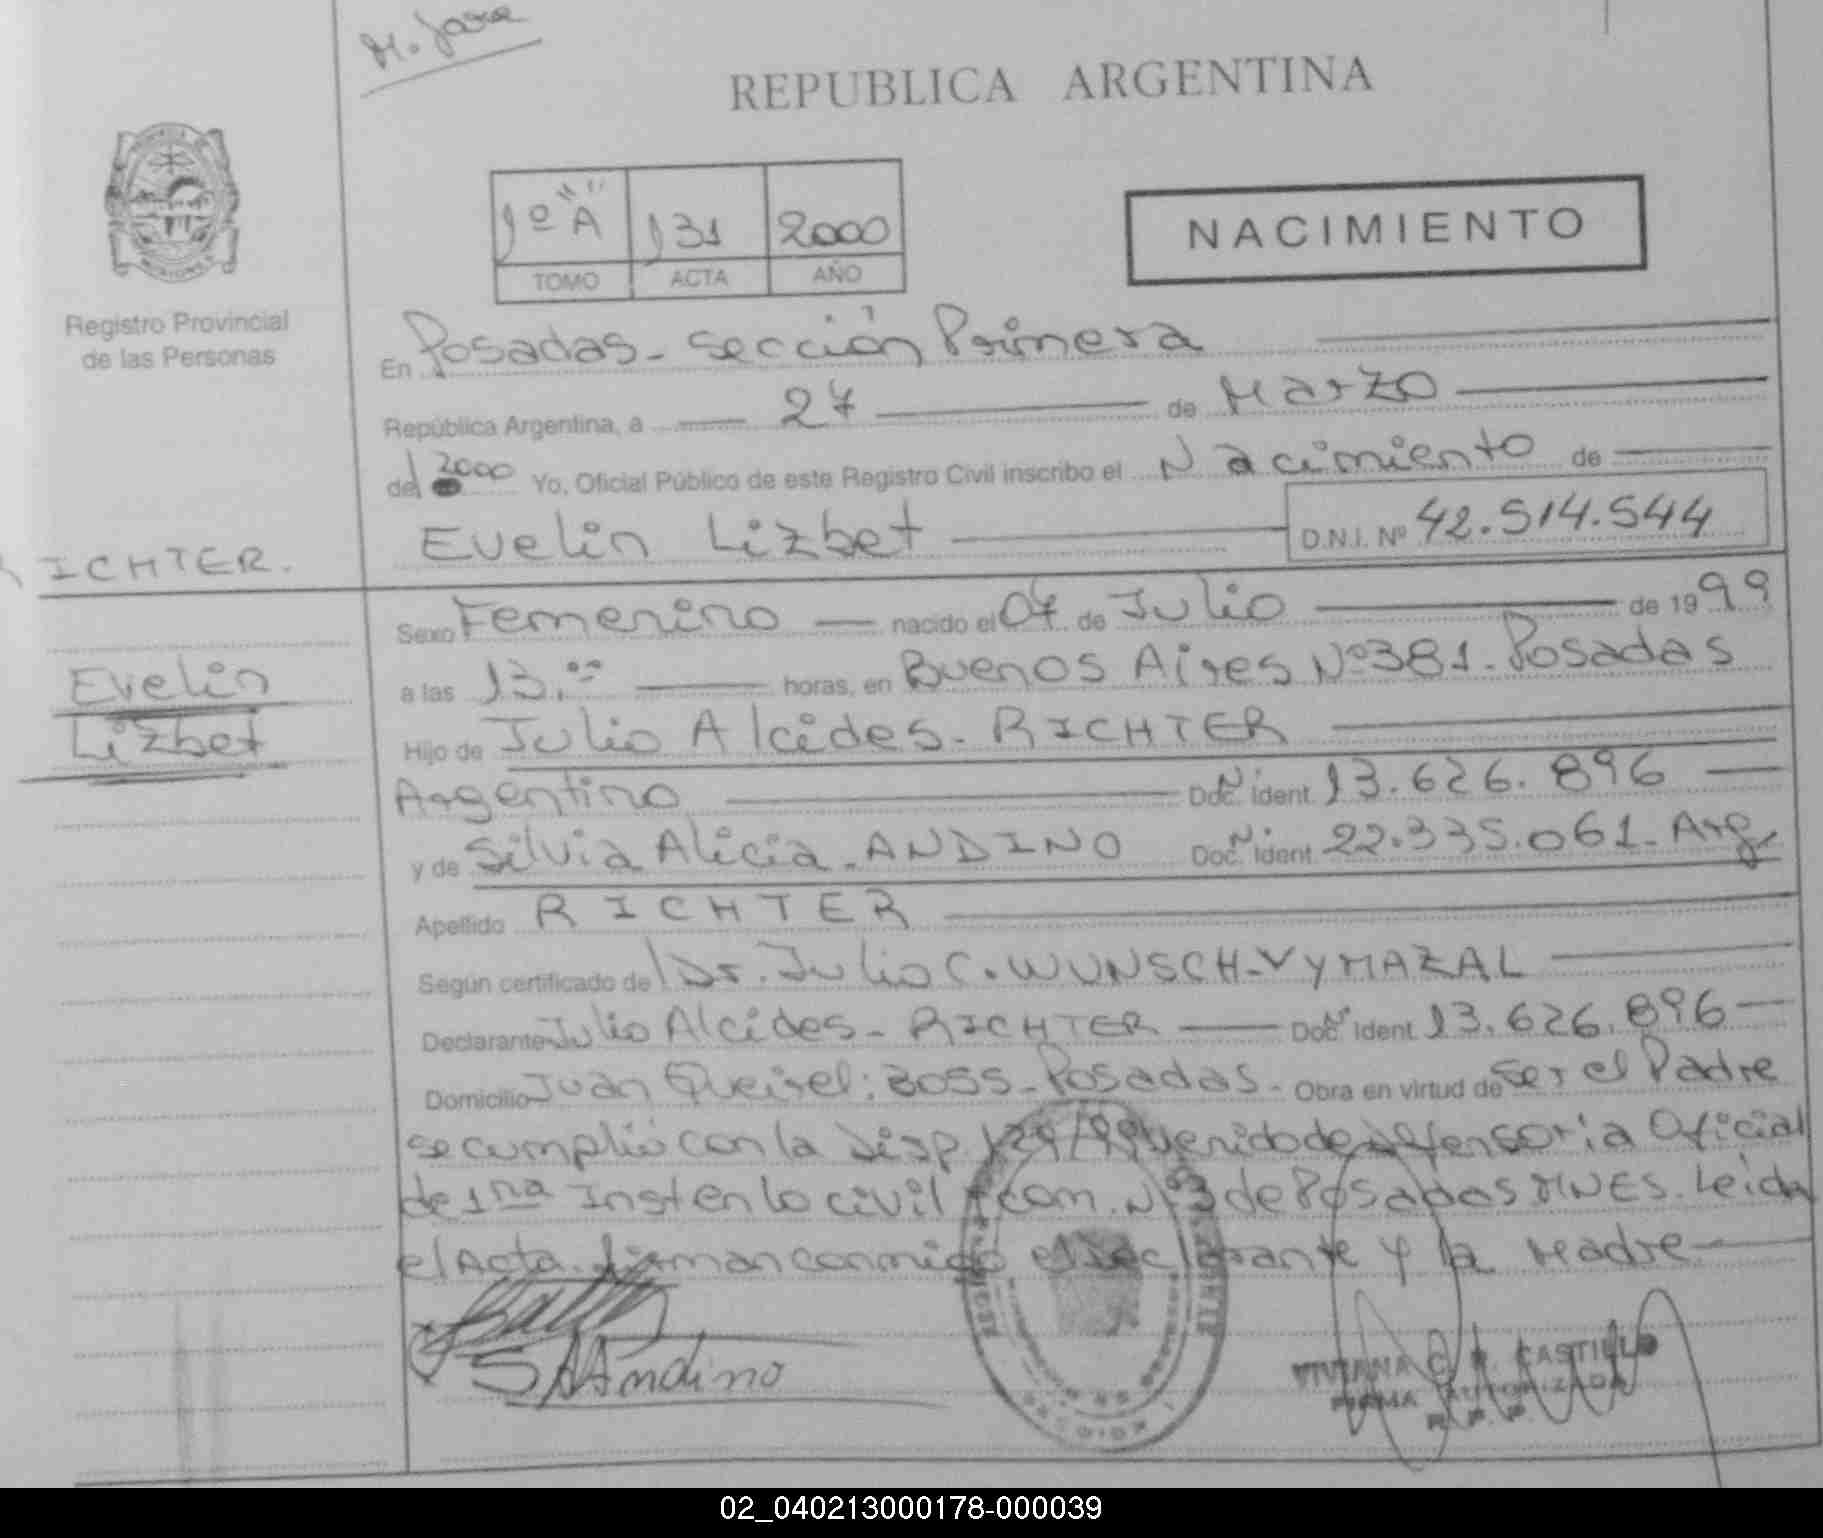 M. Jose
REPUBLICA ARGENTINA
1º "A" 131 2000
TOMO ACTA AÑO
NACIMIENTO
MISIONES
Registro Provincial
de las Personas
En Posadas - Sección Primera
República Argentina, a 27 de Marzo
del 2000 Yo, Oficial Público de este Registro Civil inscribo el Nacimiento de
Evelin Lizbet D.N.I. Nº 42.514.544
RICHTER.
Evelin
Lizbet
Sexo Femenino nacido el 07 de Julio de 1999
a las 13,00 horas, en Buenos Aires Nº 381 - Posadas
Hijo de Julio Alcides - RICHTER
Argentino Doc. Nº Ident. 13.626.896
y de Silvia Alicia - ANDINO Doc. Nº Ident. 22.335.061 - Arg.
Apellido RICHTER
Según certificado de Dr. Julio C. WUNSCH-VYMAZAL
Declarante Julio Alcides - RICHTER Doc. Nº Ident. 13.626.896
Domicilio Juan Queirel: 3055 - Posadas - Obra en virtud de Ser el Padre
se cumplió con la Disp. 129/99 venido de Defensoria Oficial
de 1ra Inst en lo civil y com. Nº 3 de Posadas MNES. Leida
el Acta firman conmigo el Declarante y la Madre
S A Andino
VIVIANA C. R. CASTILLO
FIRMA AUTORIZADA
R. P. P.
02_040213000178-000039